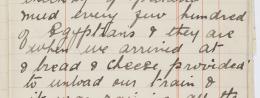 mud every few hundred
of Egyptians & they are
when we arrived at
& bread & cheese, provided
to unload our train &